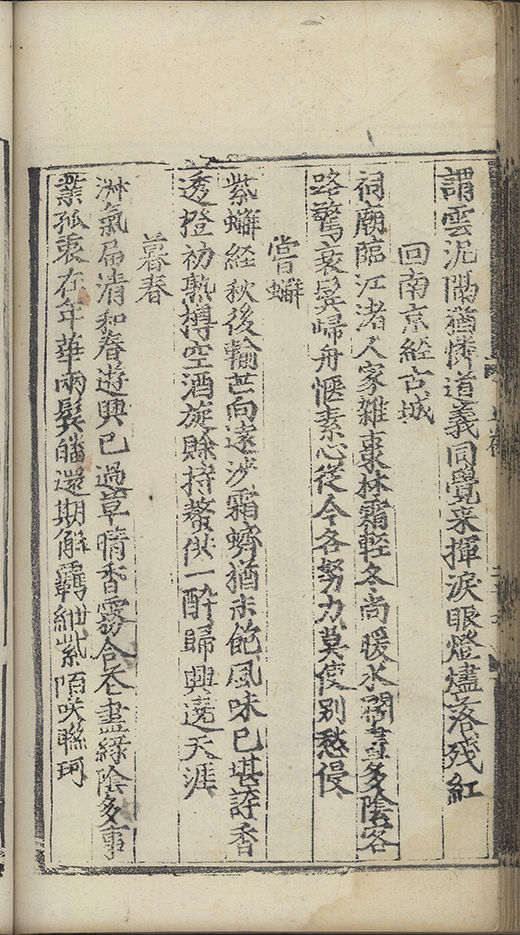 謂雲泥隔猶憐道義同覺来揮淚眼燈燼落残紅
回南京經古城
祠廟臨江渚人家雜棗林霜輕冬尚暖水濶晝多陰客
路驚衰鬓歸舟愜素心從今各努力莫使别愁侵
嘗蠏
紫蠏經秋後輸芒向遠沙霜螃猶未飽風味已堪誇香
透橙初熟樽空酒旋賖持螯供一醉歸興遶天涯
暮春
淋氣届清和春遊興已過草晴香霧合花盡緑陰多事
業孤衷在年華兩鬓皤還期解羈紲紫陌咲聯珂